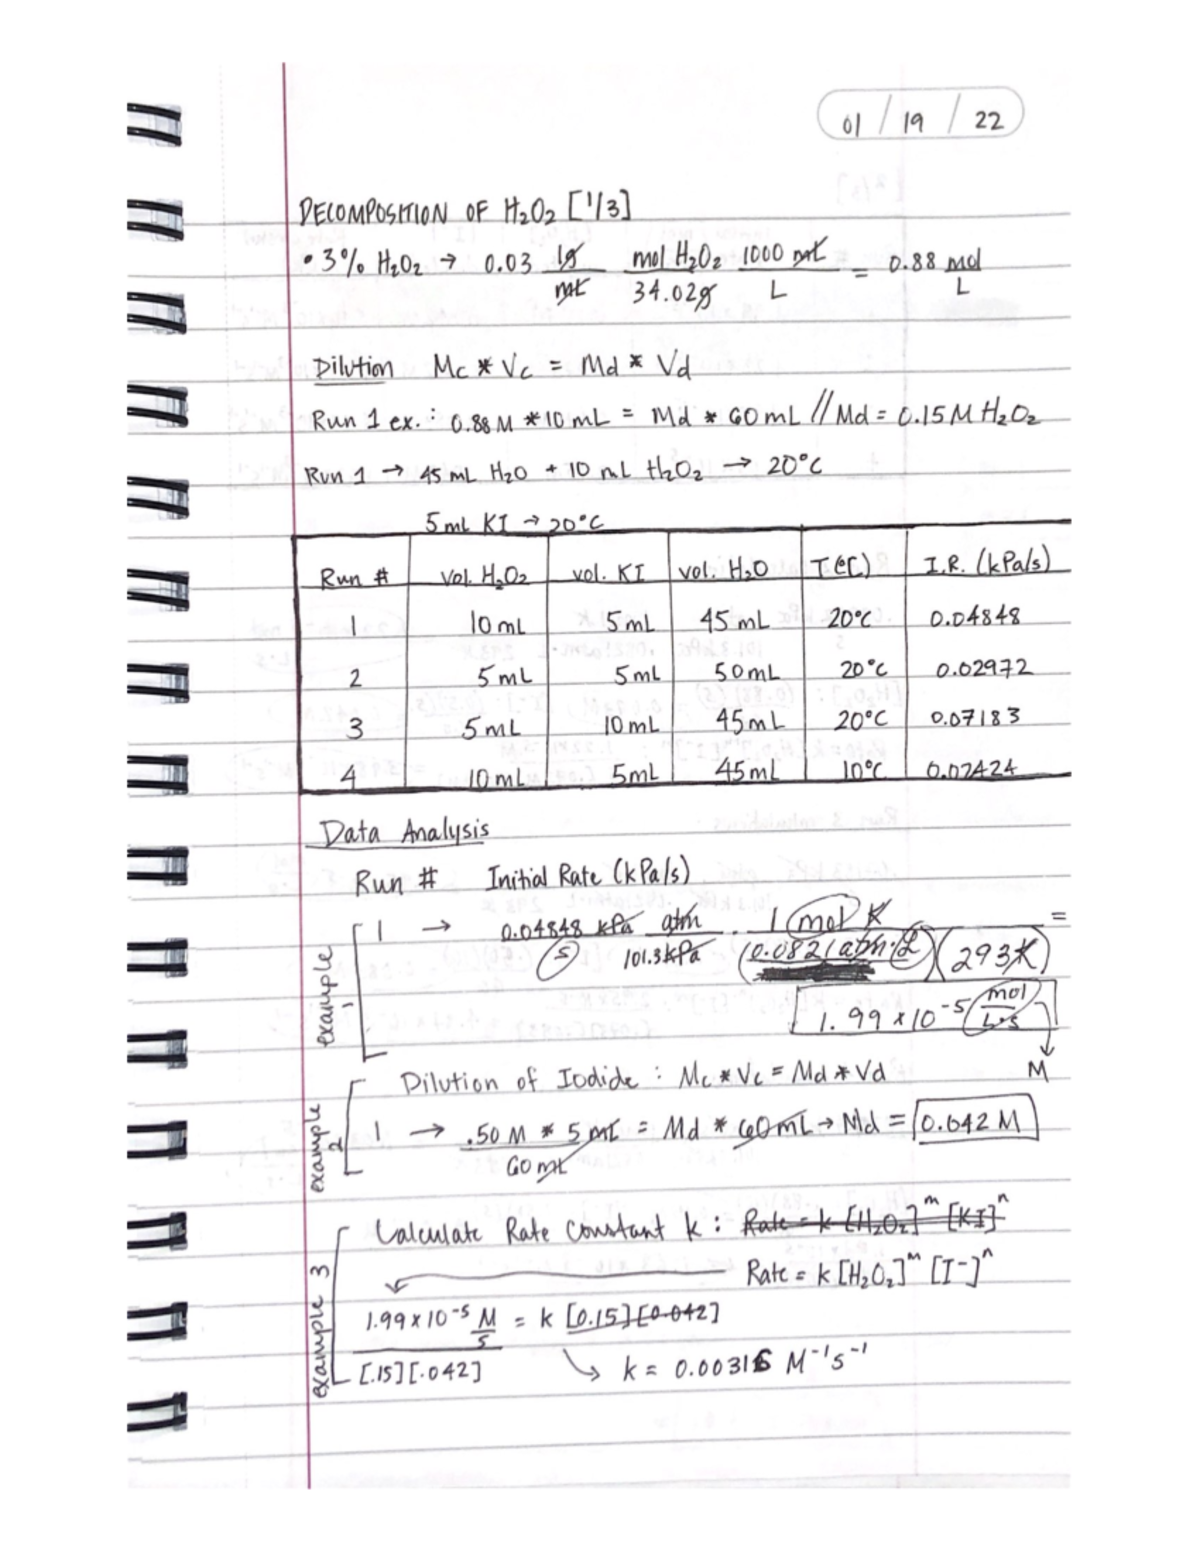 01 / 19 / 22
DECOMPOSITION OF H₂O₂ [1/3]
• 3% H₂O₂ → 0.03 1g/mL mol H₂O₂/34.02g 1000 mL/L = 0.88 mol/L
Dilution Mc * Vc = Md * Vd
Run 1 ex.: 0.88 M * 10 mL = Md * 60 mL // Md = 0.15 M H₂O₂
Run 1 → 45 mL H₂O + 10 mL H₂O₂ → 20°C
5 mL KI → 20°C
Run # vol. H₂O₂ vol. KI vol. H₂O T(°C) I.R. (kPa/s)
1 10 mL 5 mL 45 mL 20°C 0.04848
2 5 mL 5 mL 50 mL 20°C 0.02972
3 5 mL 10 mL 45 mL 20°C 0.07183
4 10 mL 5 mL 45 mL 10°C 0.02424
Data Analysis
Run # Initial Rate (kPa/s)
example 1
1 → 0.04848 kPa/s atm/101.3 kPa · 1 mol K/(0.0821 atm·L)(293K) =
1.99 x 10⁻⁵ mol/L·s
M
example 2
Dilution of Iodide : Mc * Vc = Md * Vd
1 → .50 M * 5 mL/60 mL = Md * 60 mL → Md = 0.042 M
example 3
Calculate Rate Constant k : Rate = k [H₂O₂]ᵐ [KI]ⁿ
Rate = k [H₂O₂]ᵐ [I⁻]ⁿ
1.99 x 10⁻⁵ M/s = k [0.15][0.042]
[.15][.042] → k = 0.00316 M⁻¹s⁻¹